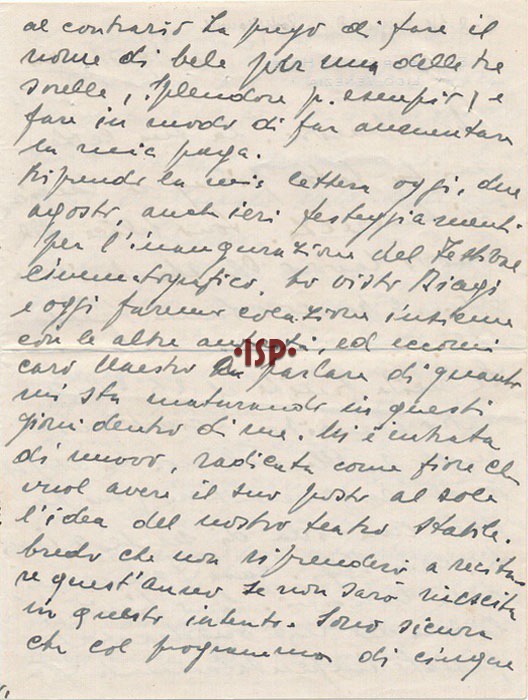 al contrario La prego di fare il
nome di bele per una delle tre
sorelle, Splendore p. esempio, e
fare in modo di far aumentare
la mia paga.
Riprendo la mia lettera oggi, due
agosto, anch ieri festeggiamenti
per l'inaugurazione del Festival
Cinematografico, ho visto Biagi
e oggi faremo colazione insieme
con le altre autorità, ed eccomi
•ISP•
caro Maestro a parlare di quanto
mi sta maturando in questi
giorni dentro di me. Mi è entrata
di nuovo, radicata come fiore che
vuol avere il suo posto al sole
l'idea del nostro teatro stabile.
Credo che non riprenderò a recita
re quest'anno se non sarò riuscita
in questo intento. Sono sicura
che col programma di cinque